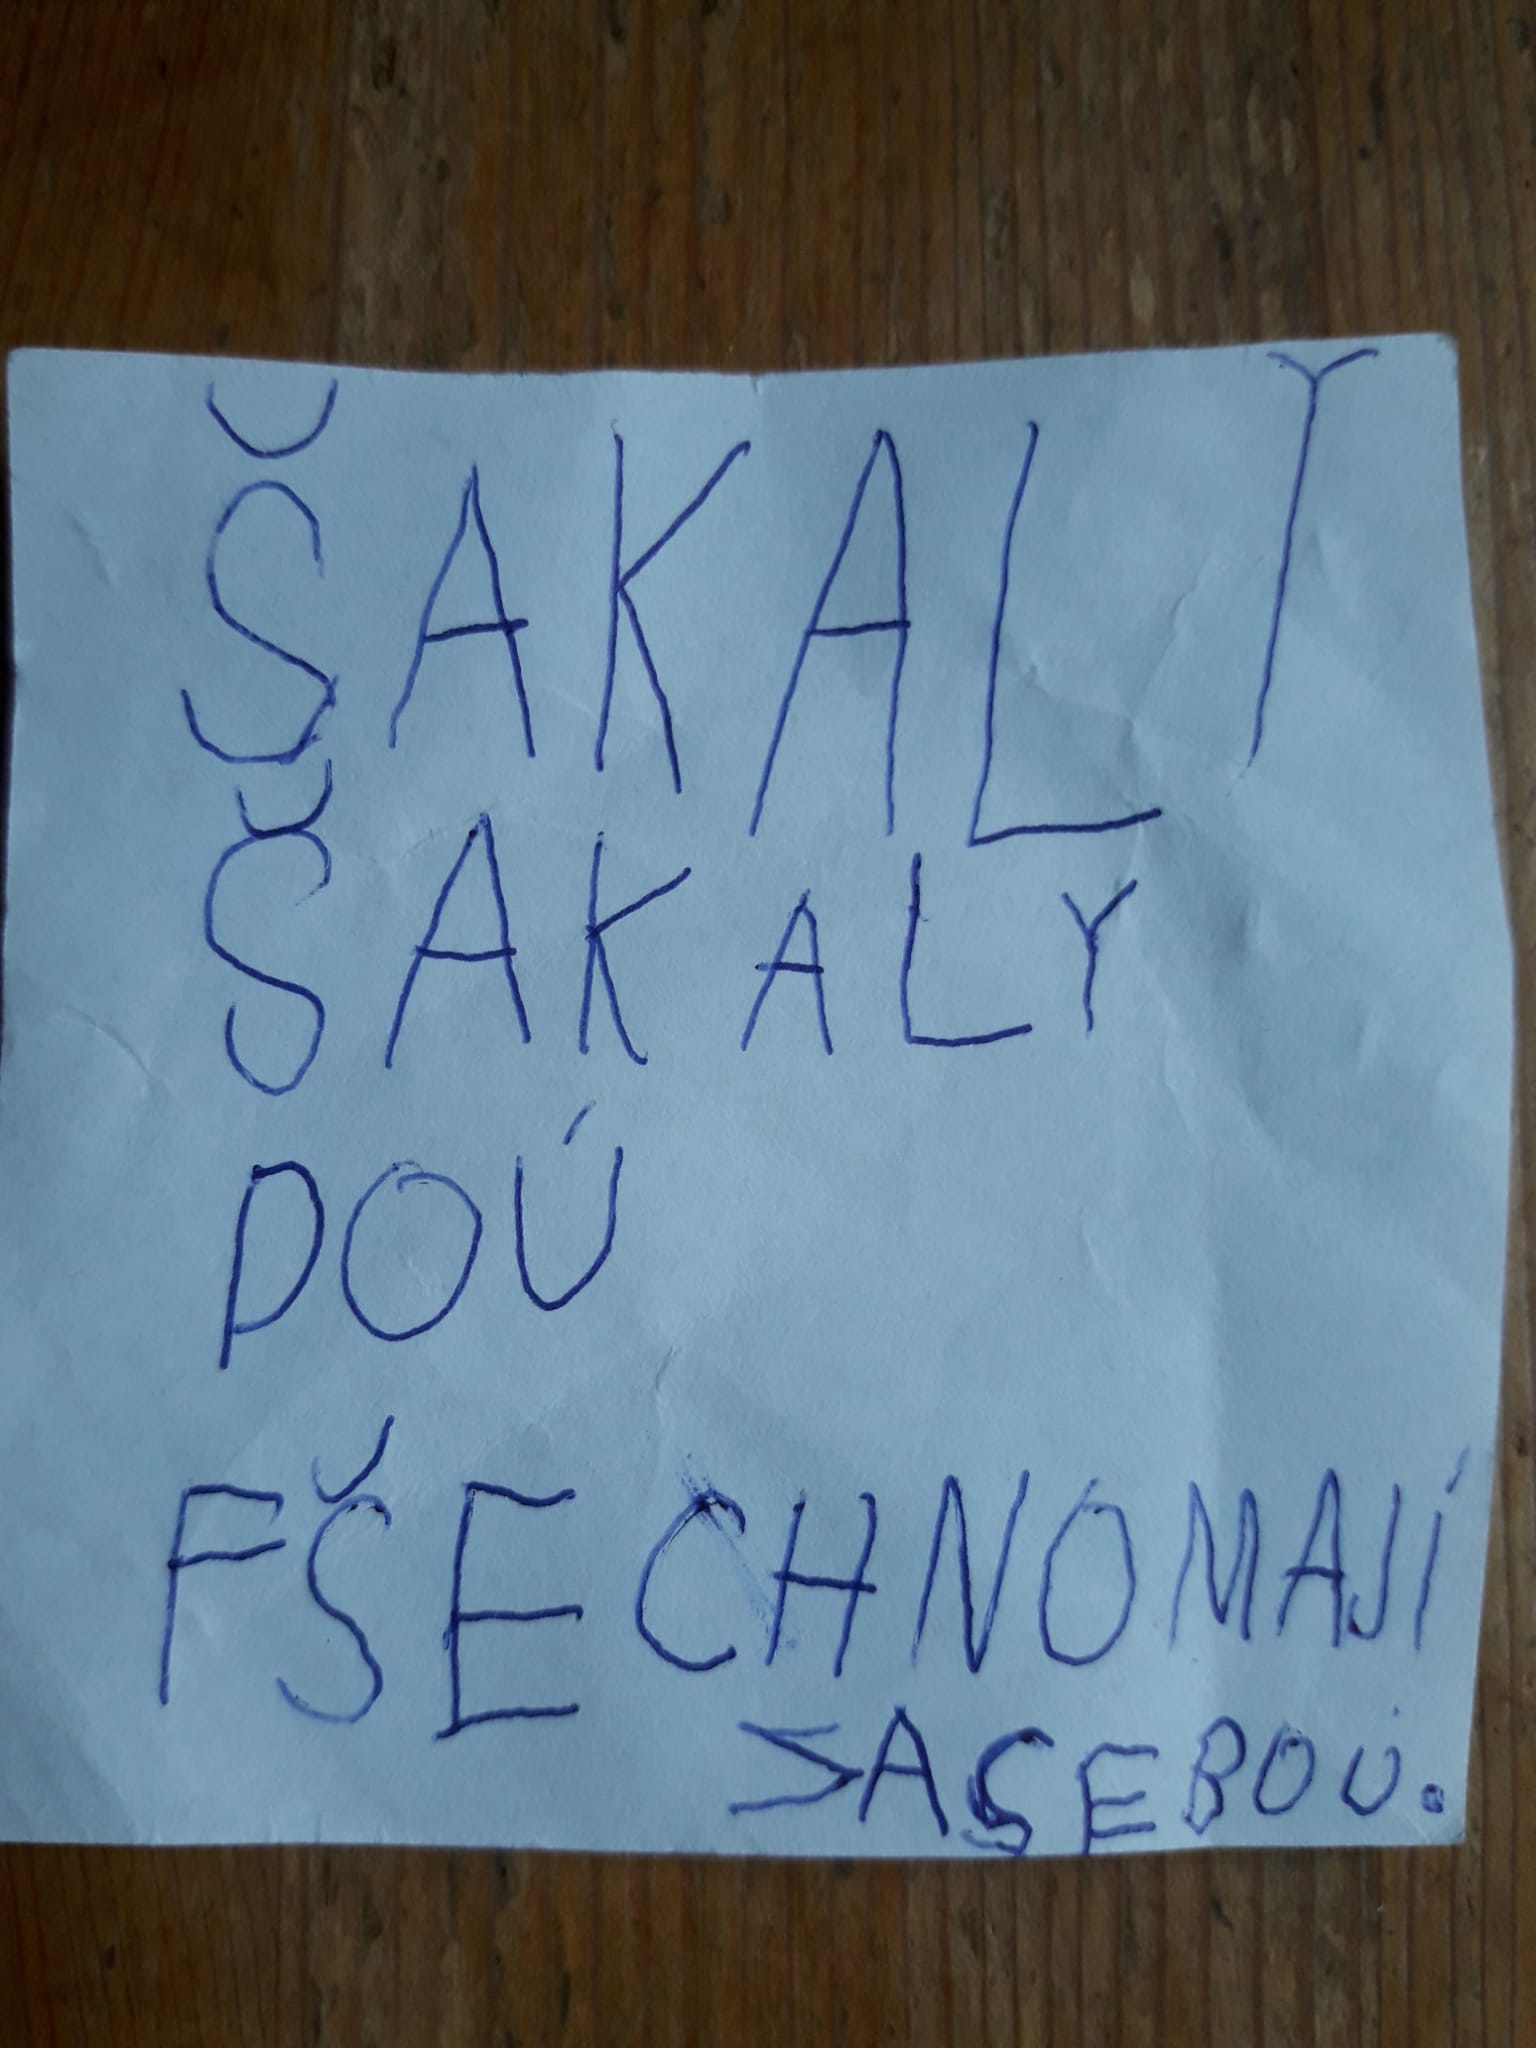 ŠAKALY
ŠAKALY
DOÚ
FŠECHNOMAJÍ
ZASEBOÚ.